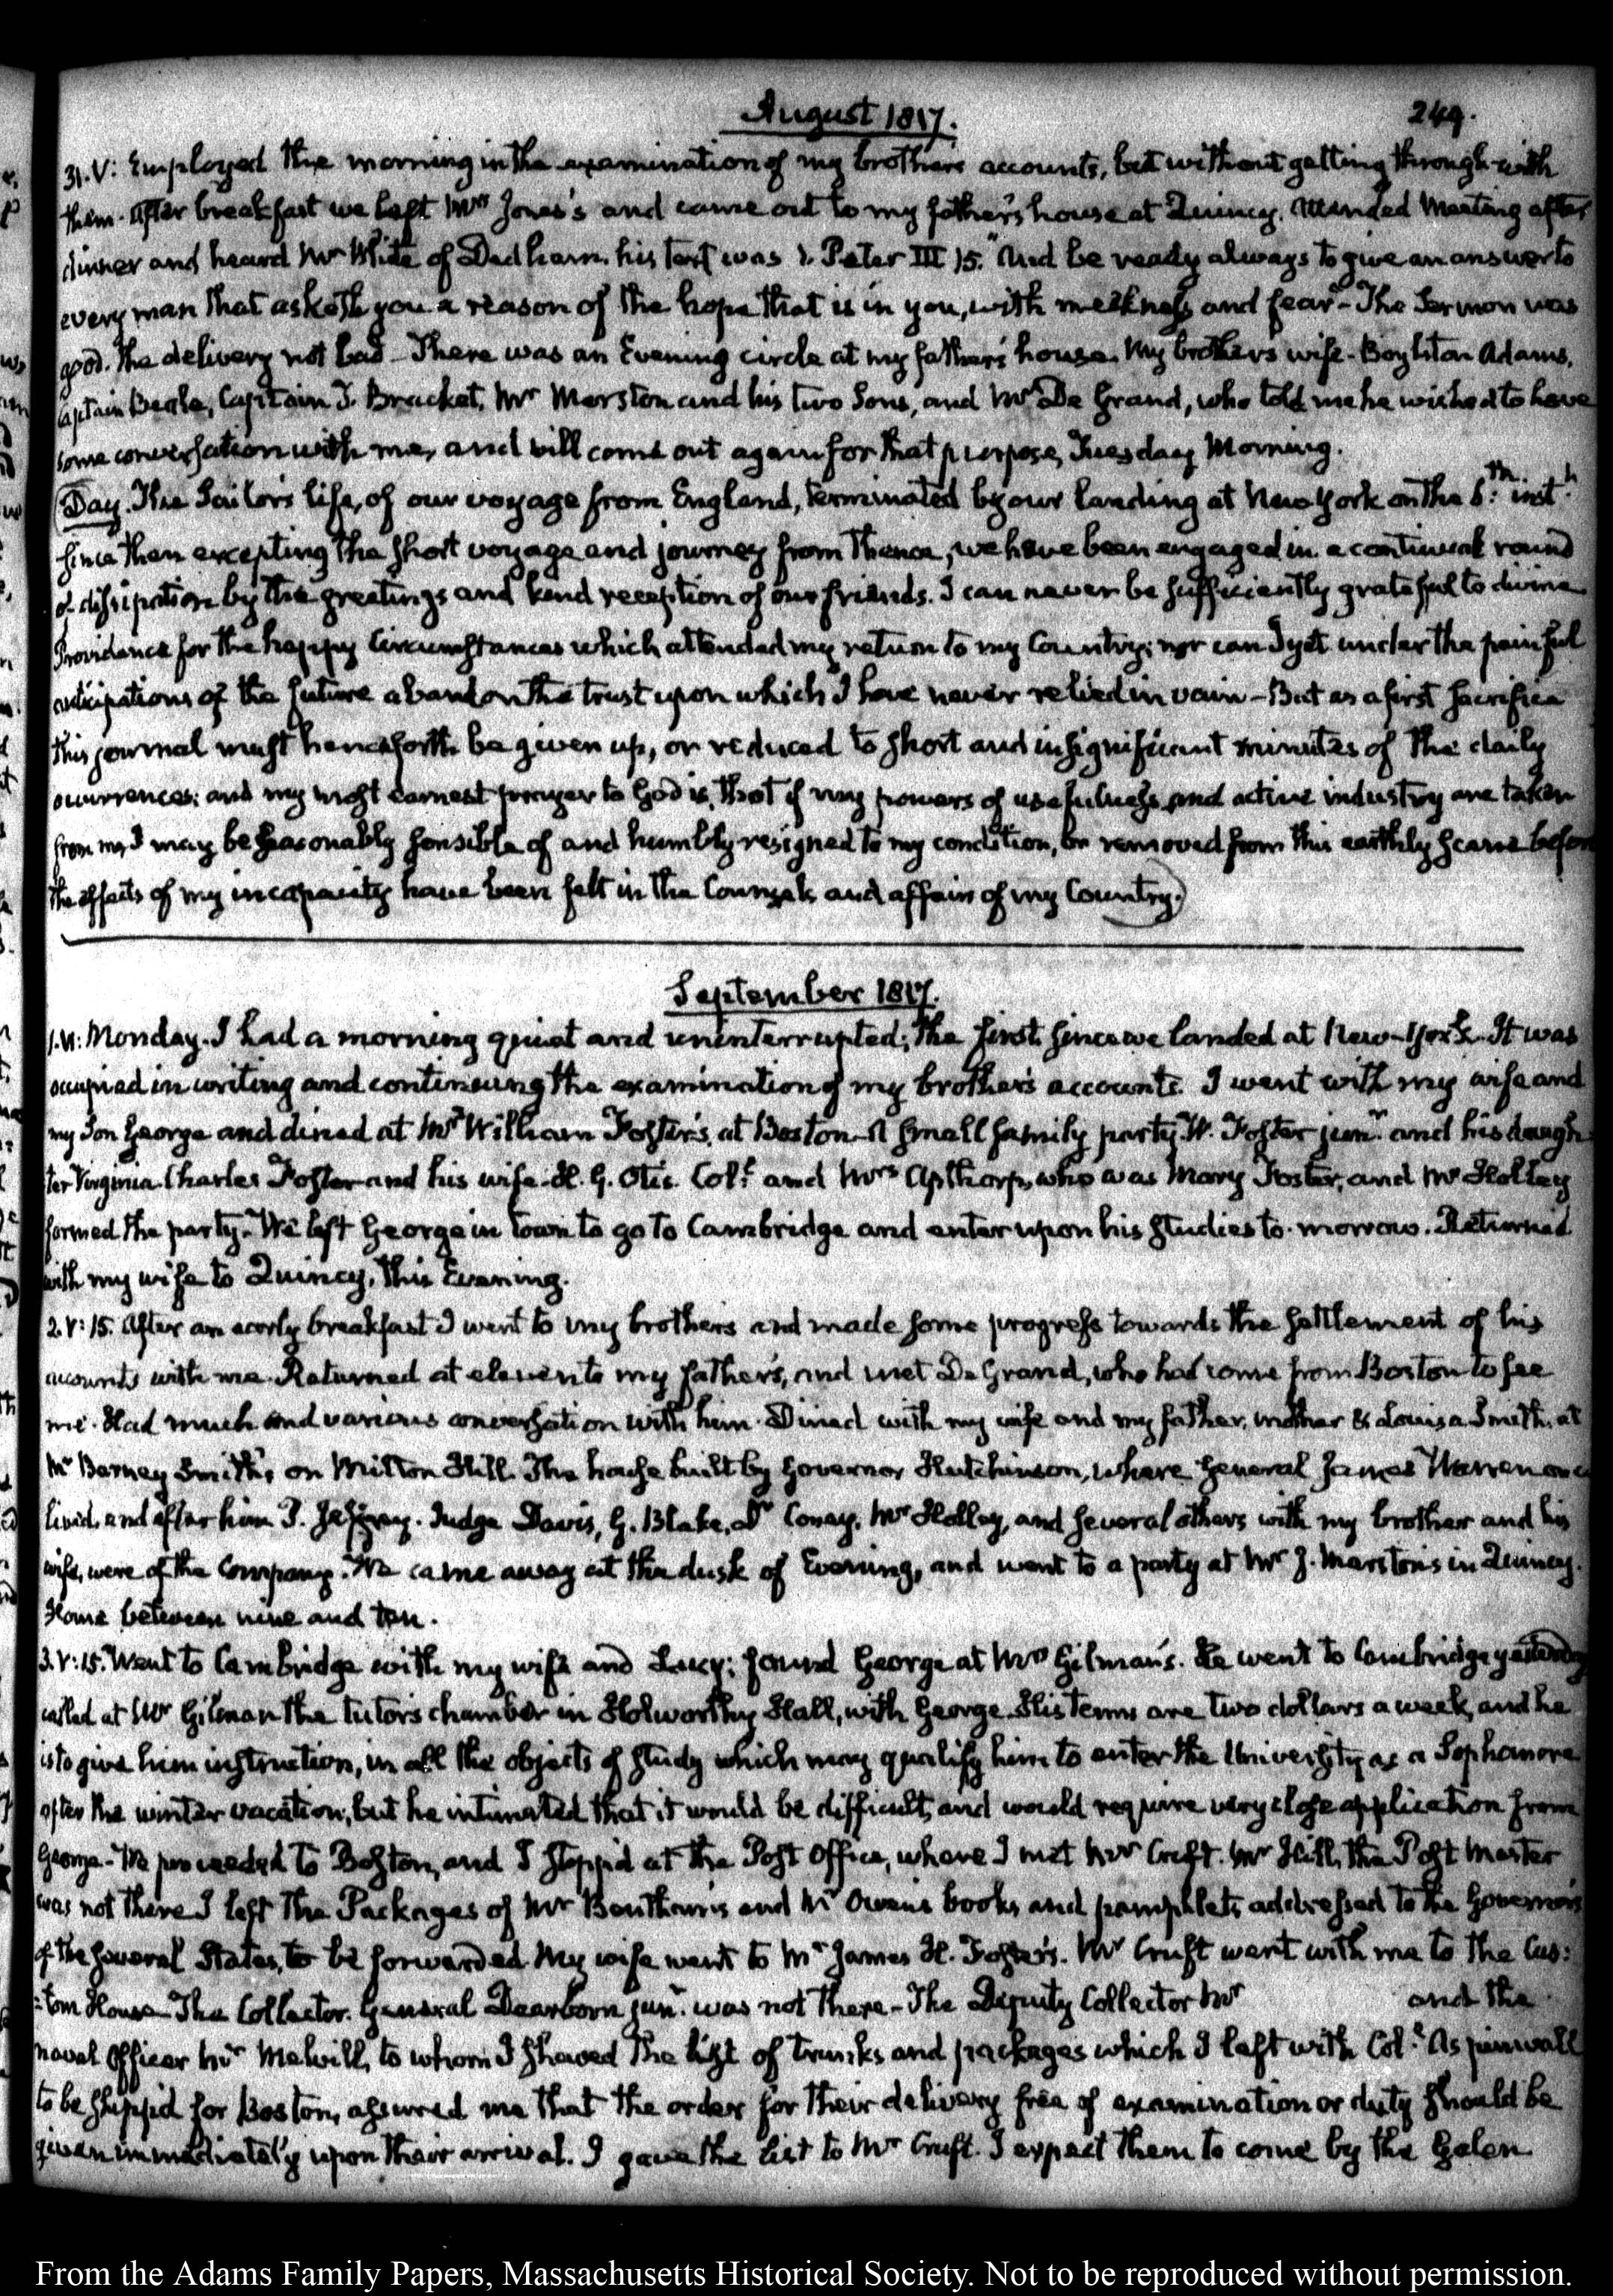 August 1817.
249.
31. V: Employed the morning in the examination of my brother's accounts, but without getting through with
them. After breakfast we left Mrs Jones's and came out to my father's house at Quincy. Attended Meeting after
dinner and heard Mr White of Dedham. his text was 1. Peter III 15. "And be ready always to give an answer to
every man that asketh you a reason of the hope that is in you, with meekness and fear"- The Sermon was
good. the delivery not bad - There was an Evening circle at my father's house. My brother's wife - Boylston Adams,
Captain Beale, Captain J. Bracket, Mr Marston and his two Sons, and Mr De Grand, who told me he wished to have
some conversation with me, and will come out again for that purpose, Tuesday Morning.
(Day. The Sailor's life, of our voyage from England, terminated by our landing at New York on the 6th inst
since then excepting the short voyage and journey from thence, we have been engaged in a continual round
of dissipation by the greetings and kind reception of our friends. I can never be sufficiently grateful to divine
Providence for the happy Circumstances which attended my return to my Country; nor can I yet under the painful
anticipations of the future abandon the trust upon which I have never relied in vain - But as a first sacrifice
this journal must henceforth be given up, or reduced to short and insignificant minutes of the daily
occurrences; and my most earnest prayer to God is, that if my powers of usefulness and active industry are taken
from me, I may be seasonably sensible of and humbly resigned to my condition, or removed from this earthly scene before
the effects of my incapacity have been felt in the Counsels and affairs of my Country.)
September 1817.
1. VI: Monday. I had a morning quiet and uninterrupted; the first since we landed at New-York. It was
occupied in writing and continuing the examination of my brother's accounts. I went with my wife and
my Son George and dined at Mr William Foster's, at Boston - A small family party. W. Foster junr. and his daugh
ter Virginia. Charles Foster and his wife. H. G. Otis. Coll. and Mrs Apthorp, who was Mary Foster, and Mr Holley
formed the party. We left George in town to go to Cambridge and enter upon his studies to-morrow. Returned
with my wife to Quincy, this Evening.
2. V: 15. After an early breakfast I went to my brother's and made some progress towards the settlement of his
accounts with me. Returned at eleven to my father's, and met De Grand, who had come from Boston to see
me. Had much and various conversation with him. Dined with my wife and my father, mother & Louisa Smith, at
Mr Barney Smith's, on Milton Hill. The house built by Governor Hutchinson, where General James Warren once
lived, and after him J. Jeffrey. Judge Davis, G. Blake, Mr Holley, and several others with my brother and his
wife, were of the Company. We came away at the dusk of Evening, and went to a party at Mr J. Marston's in Quincy.
Home between nine and ten.
3. V: 15. Went to Cambridge with my wife and Lucy; found George at Mrs Gilman's. He went to Cambridge yesterday
called at Mr Gilman the tutor's chamber in Holworthy Hall, with George. His terms are two dollars a week, and he
is to give him instruction, in all the objects of study which may qualify him to enter the University as a Sophomore
after the winter vacation; but he intimated that it would be difficult, and would require very close application from
George - We proceeded to Boston, and I stopp'd at the Post Office, where I met Mr Cruft. Mr Hill, the Post Master
was not there. I left the Packages of Mr Bentham's and Mr Owen's books and pamphlets addressed to the Governors
of the several States, to be forwarded. My wife went to Mr James H. Foster's. Mr Cruft went with me to the Cus:
:tom House - The Collector. General Dearborn junr. was not there - The Deputy Collector Mr and the
naval Officer Mr Melvill, to whom I shewed the list of trunks and packages which I left with Coll. Aspinwall
to be shipp'd for Boston, assured me that the order for their delivery free of examination or duty should be
given immediately upon their arrival. I gave the list to Mr Cruft. I expect them to come by the Galen
From the Adams Family Papers, Massachusetts Historical Society. Not to be reproduced without permission.